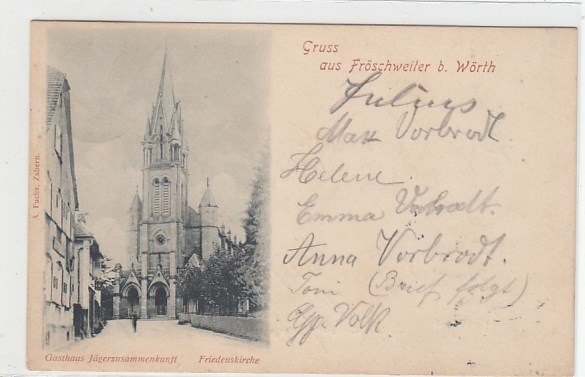 Gruss
aus Fröschweiler b. Wörth
Julius
Max Vorbrodt
Helene
Emma Vorbrodt.
Anna Vorbrodt.
Toni (Brief folgt)
Volk
A. Fuchs, Zabern.
Gasthaus Jägerzusammenkunft Friedenskirche